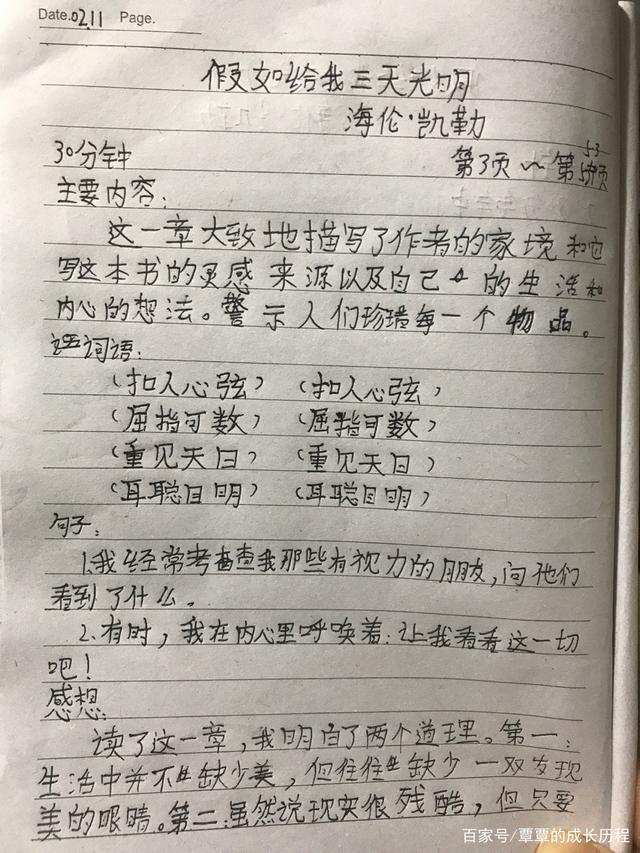 Date.02.11 Page.
假如给我三天光明
海伦·凯勒
30分钟 第3页~第53页
主要内容:
这一章大致地描写了作者的家境和它
写这本书的灵感来源以及自己的生活和
内心的想法。警示人们珍惜每一个物品。
词语:
(扣人心弦) (扣人心弦)
(屈指可数) (屈指可数)
(重见天日) (重见天日)
(耳聪目明) (耳聪目明)
句子:
1.我经常考查我那些有视力的朋友,问他们
看到了什么。
2.有时,我在内心里呼唤着:让我看看这一切
吧!
感想:
读了这一章,我明白了两个道理。第一:
生活中并不缺少美,但往往缺少一双发现
美的眼睛。第二:虽然说现实很残酷,但只要
百家号/覃覃的成长历程